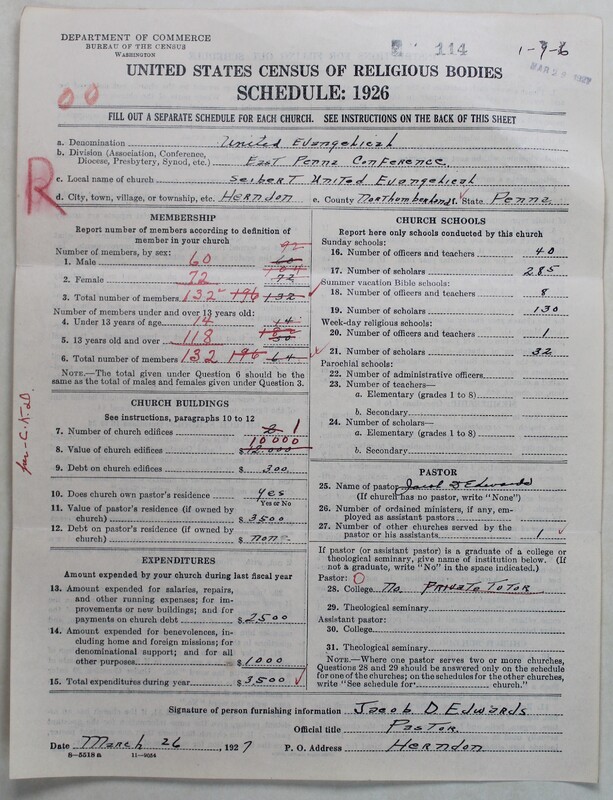 DEPARTMENT OF COMMERCE
BUREAU OF THE CENSUS
WASHINGTON
114
1-9-6
MAR 1927
UNITED STATES CENSUS OF RELIGIOUS BODIES
SCHEDULE: 1926
00
FILL OUT A SEPARATE SCHEDULE FOR EACH CHURCH. SEE INSTRUCTIONS ON THE BACK OF THIS SHEET
R
a. Denomination United Evangelical
b. Division (Association, Conference,
Diocese, Presbytery, Synod, etc.) East Penna Conference
c. Local name of church Seibert United Evangelical
d. City, town, village, or township, etc. Herndon e. County Northumberland f. State Penna.
MEMBERSHIP
Report number of members according to definition of
member in your church
Number of members, by sex: 92
1. Male 60 60
104
2. Female 72 72
3. Total number of members 132 196 132
Number of members under and over 13 years old:
4. Under 13 years of age 14 14
5. 13 years old and over 118 182 50
6. Total number of members 132 196 64
NOTE.—The total given under Question 6 should be
the same as the total of males and females given under Question 3.
CHURCH BUILDINGS
See instructions, paragraphs 10 to 12
7. Number of church edifices 1
10000
8. Value of church edifices $ 12.000
9. Debt on church edifices $ 300
10. Does church own pastor's residence Yes
Yes or No
11. Value of pastor's residence (if owned by
church) $ 3500
12. Debt on pastor's residence (if owned by
church) $ none
EXPENDITURES
Amount expended by your church during last fiscal year
13. Amount expended for salaries, repairs,
and other running expenses; for im-
provements or new buildings; and for
payments on church debt $ 2500
14. Amount expended for benevolences, in-
cluding home and foreign missions; for
denominational support; and for all
other purposes $ 1000
15. Total expenditures during year $ 3500
CHURCH SCHOOLS
Report here only schools conducted by this church
Sunday schools:
16. Number of officers and teachers 40
17. Number of scholars 285
Summer vacation Bible schools:
18. Number of officers and teachers 8
19. Number of scholars 130
Week-day religious schools:
20. Number of officers and teachers 1
21. Number of scholars 32
Parochial schools:
22. Number of administrative officers
23. Number of teachers—
a. Elementary (grades 1 to 8)
b. Secondary
24. Number of scholars—
a. Elementary (grades 1 to 8)
b. Secondary
PASTOR
25. Name of pastor Jacob D Edwards
(If church has no pastor, write "None")
26. Number of ordained ministers, if any, em-
ployed as assistant pastors
27. Number of other churches served by the
pastor or his assistants 1
If pastor (or assistant pastor) is a graduate of a college or
theological seminary, give name of institution below. (If
not a graduate, write "No" in the space indicated.)
Pastor: 0
28. College no Private Tutor
29. Theological seminary
Assistant pastor:
30. College
31. Theological seminary
NOTE.—Where one pastor serves two or more churches,
Questions 28 and 29 should be answered only on the schedule
for one of the churches; on the schedules for the other churches,
write "See schedule for church."
Signature of person furnishing information Jacob D Edwards
Official title Pastor
Date March 26, 1927 P. O. Address Herndon
8—5518 a 11—9054